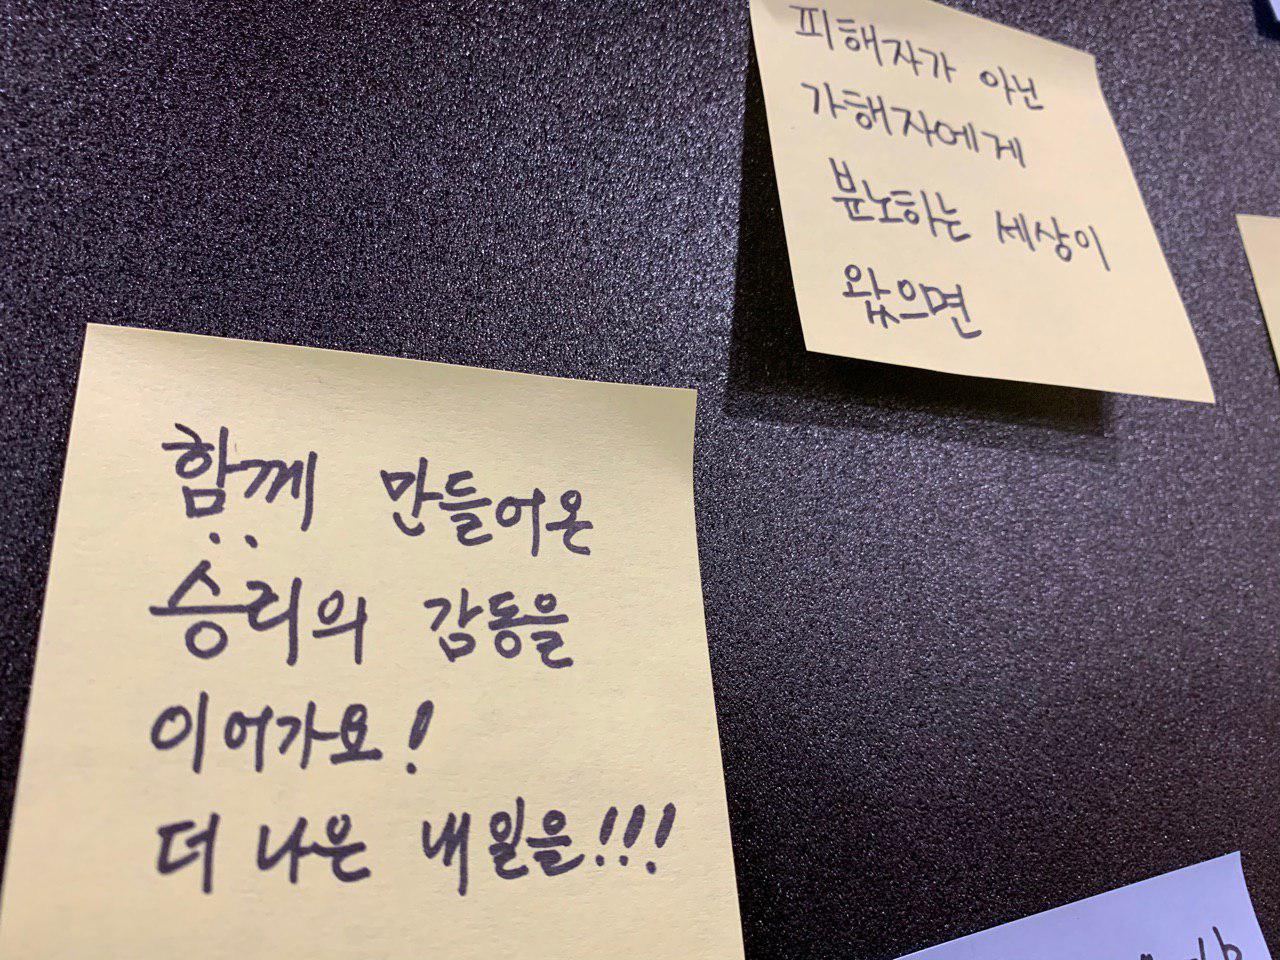 피해자가 아닌
가해자에게
분노하는 세상이
왔으면
함께 만들어온
승리의 감동을
이어가요!
더 나은 내일을!!!